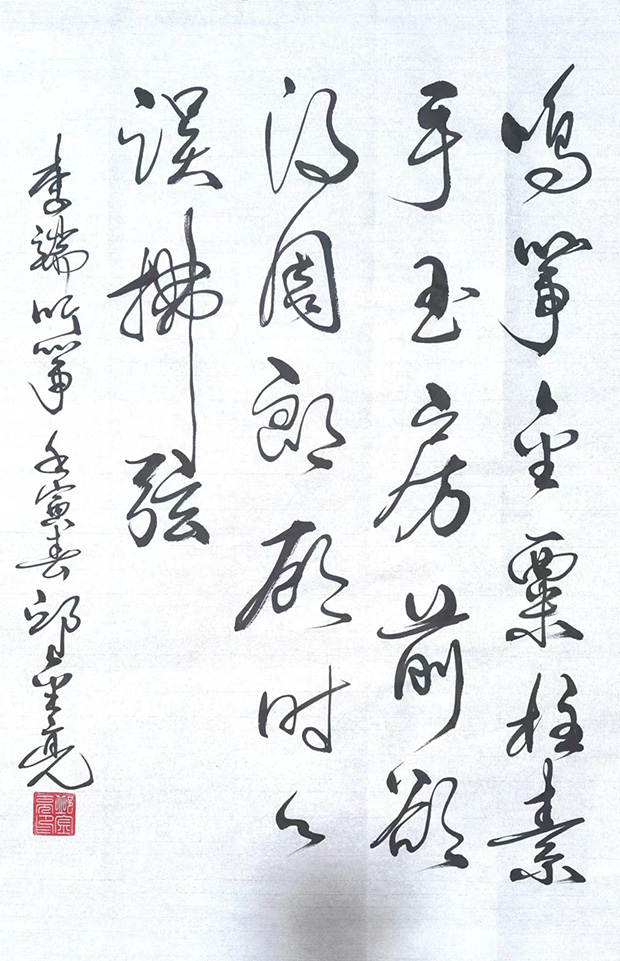 鸣筝金粟柱素
手玉房前欲
得周郎顾时々
误拂弦
李端听筝 壬寅春 邱金亮